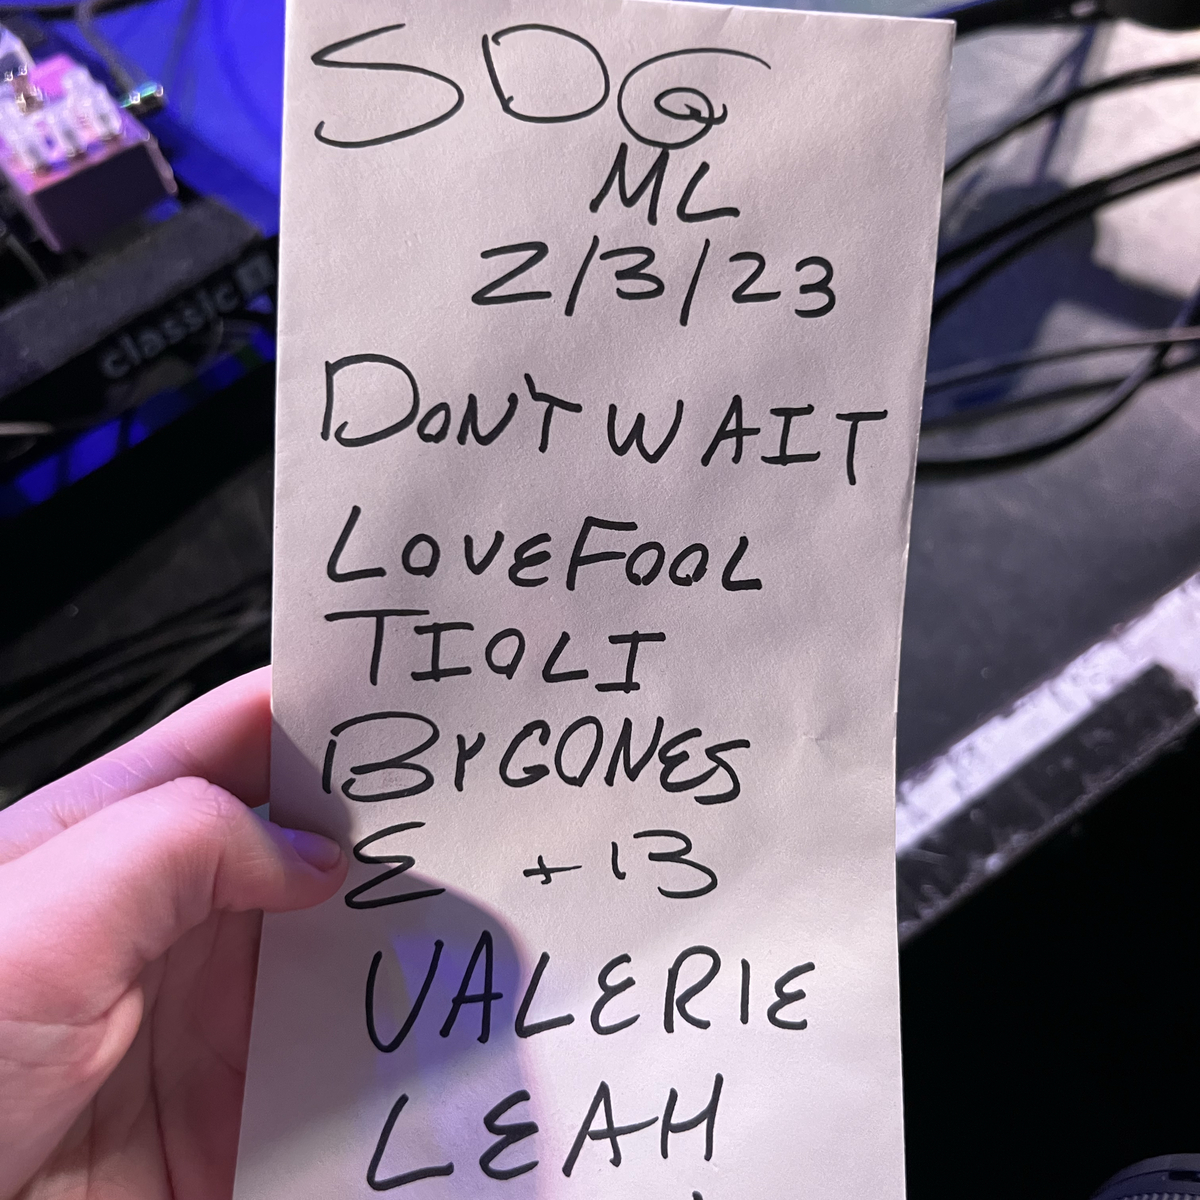 SDG @
ML
2/3/23
DON'T WAIT
LOVEFOOL
TIOLI
BYGONES
E + B
VALERIE
LEAH
classic